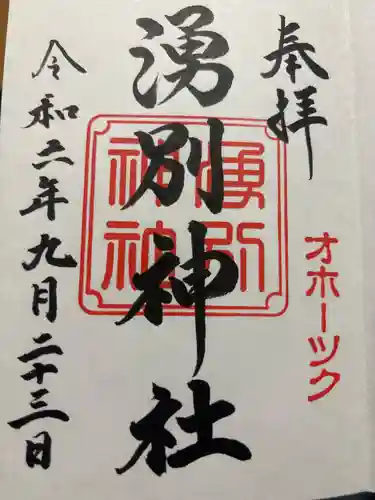 奉拝
オホーツク
湧別神社
湧別
神社
令和二年九月二十三日